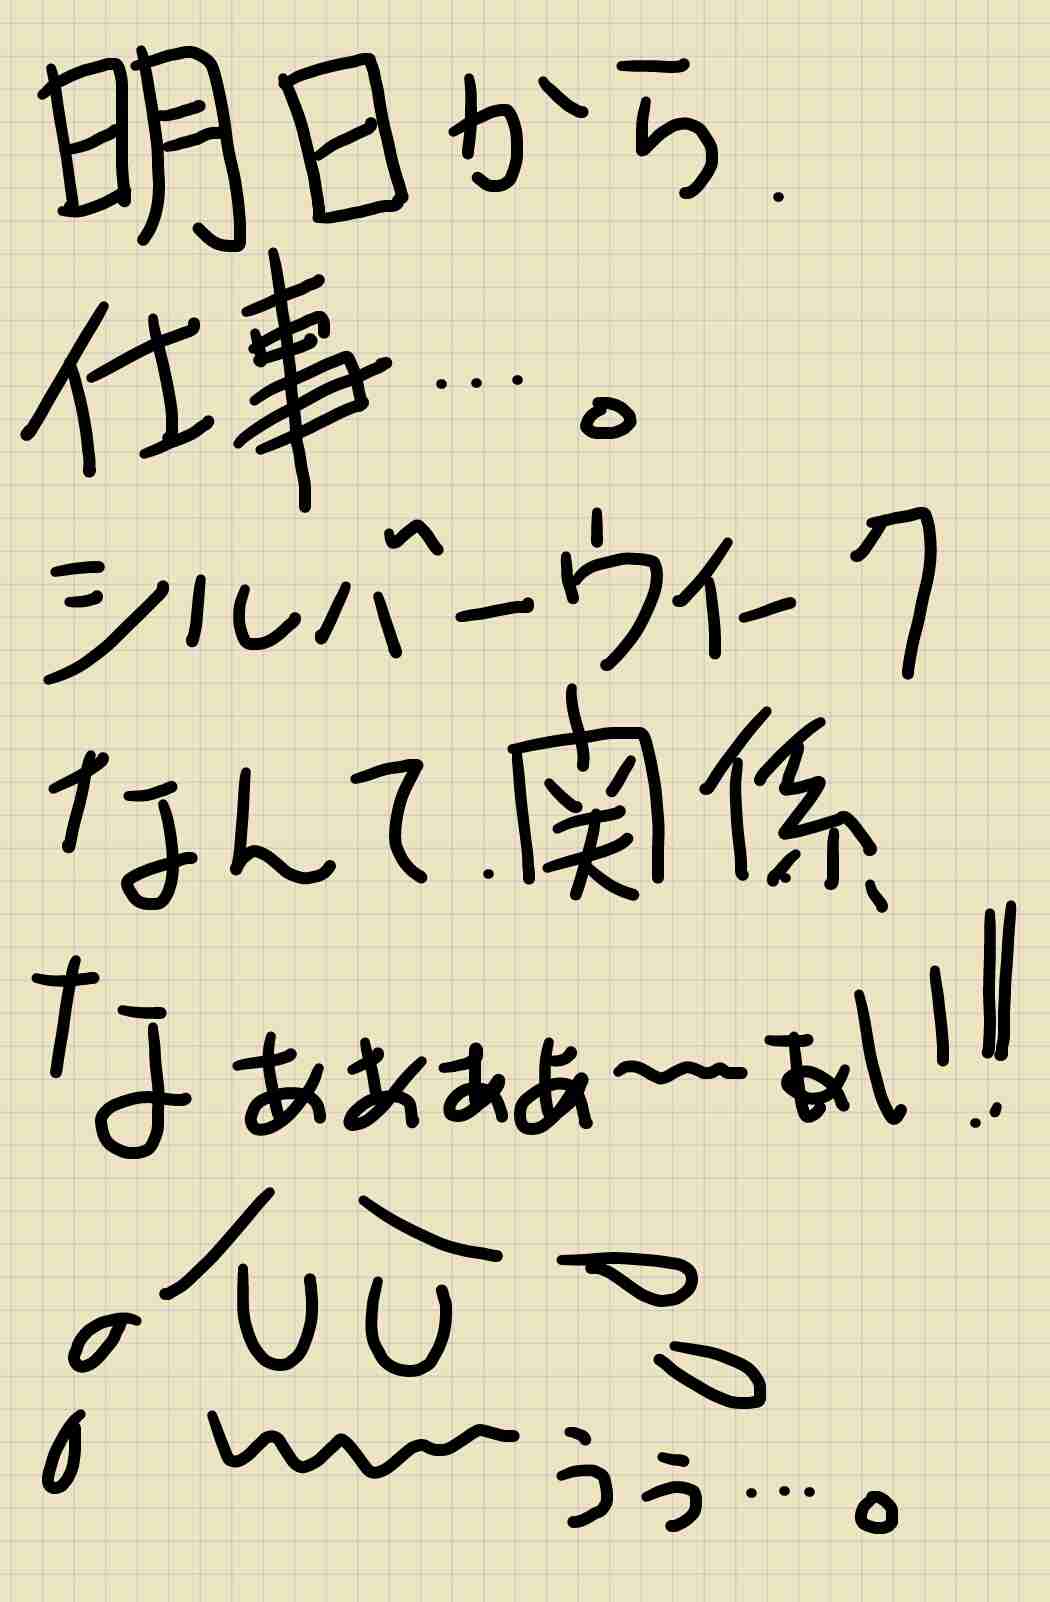 明日から
仕事…。
シルバーウィーク
なんて関係、
なぁぁぁぁ〜ぁい!!!
うぅ…。